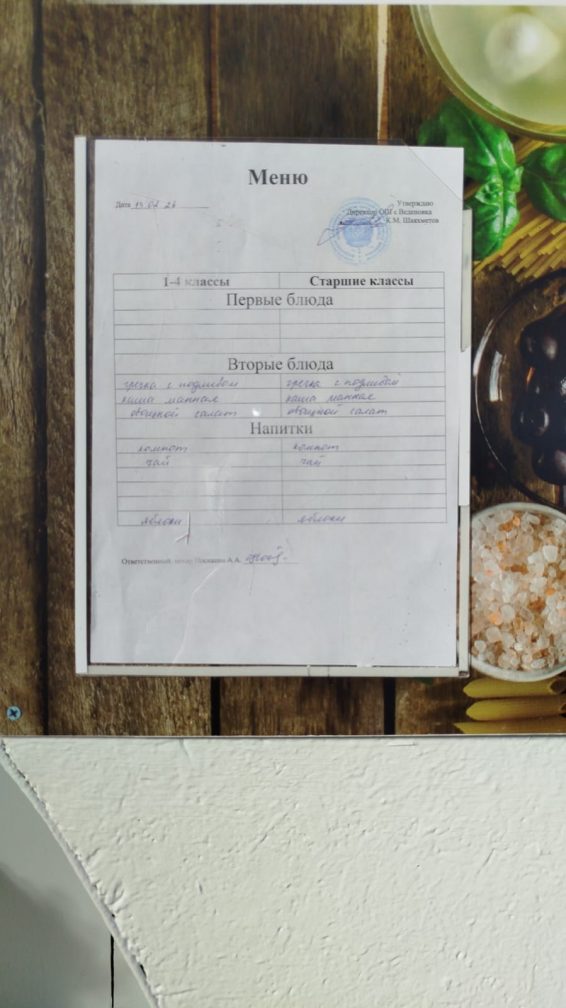 Меню
Дата 13.02.26
Утверждаю
Директор ОШ с Веденовка
К.М. Шаяхметов
1-4 классы Старшие классы
Первые блюда
Вторые блюда
гречка с подливой гречка с подливой
каша манная каша манная
овощной салат овощной салат
Напитки
компот компот
чай чай
яблоки яблоки
Ответственный: повар А.А.